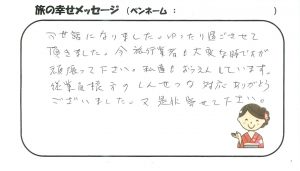 旅の幸せメッセージ（ペンネーム：　　　　）
お世話になりました。ゆったり過ごさせて
頂きました。今旅行業者も大変な時ですが
頑張って下さい。私達もおうえんしています。
従業員様方のしんせつな対応ありがとう
ございました。又是非寄せて下さい。